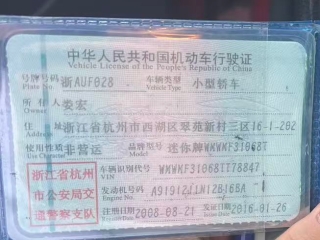 中华人民共和国机动车行驶证
Vehicle License of the People's Republic of China
号牌号码 浙AUF028 车辆类型 小型轿车
Plate No. Vehicle Type
所有人 娄宏
Owner
住址 浙江省杭州市西湖区翠苑新村三区16-1-202
Address
使用性质 非营运 品牌型号 迷你牌WMWMF31068T
Use Character Model
浙江省杭州 车辆识别代号 WMWMF31068TT78847
VIN
市公安局交 发动机号码 A91912J1N12B16BA
Engine No.
通警察支队 注册日期 2008-08-21 发证日期 2016-01-26
Register Date Issue Date